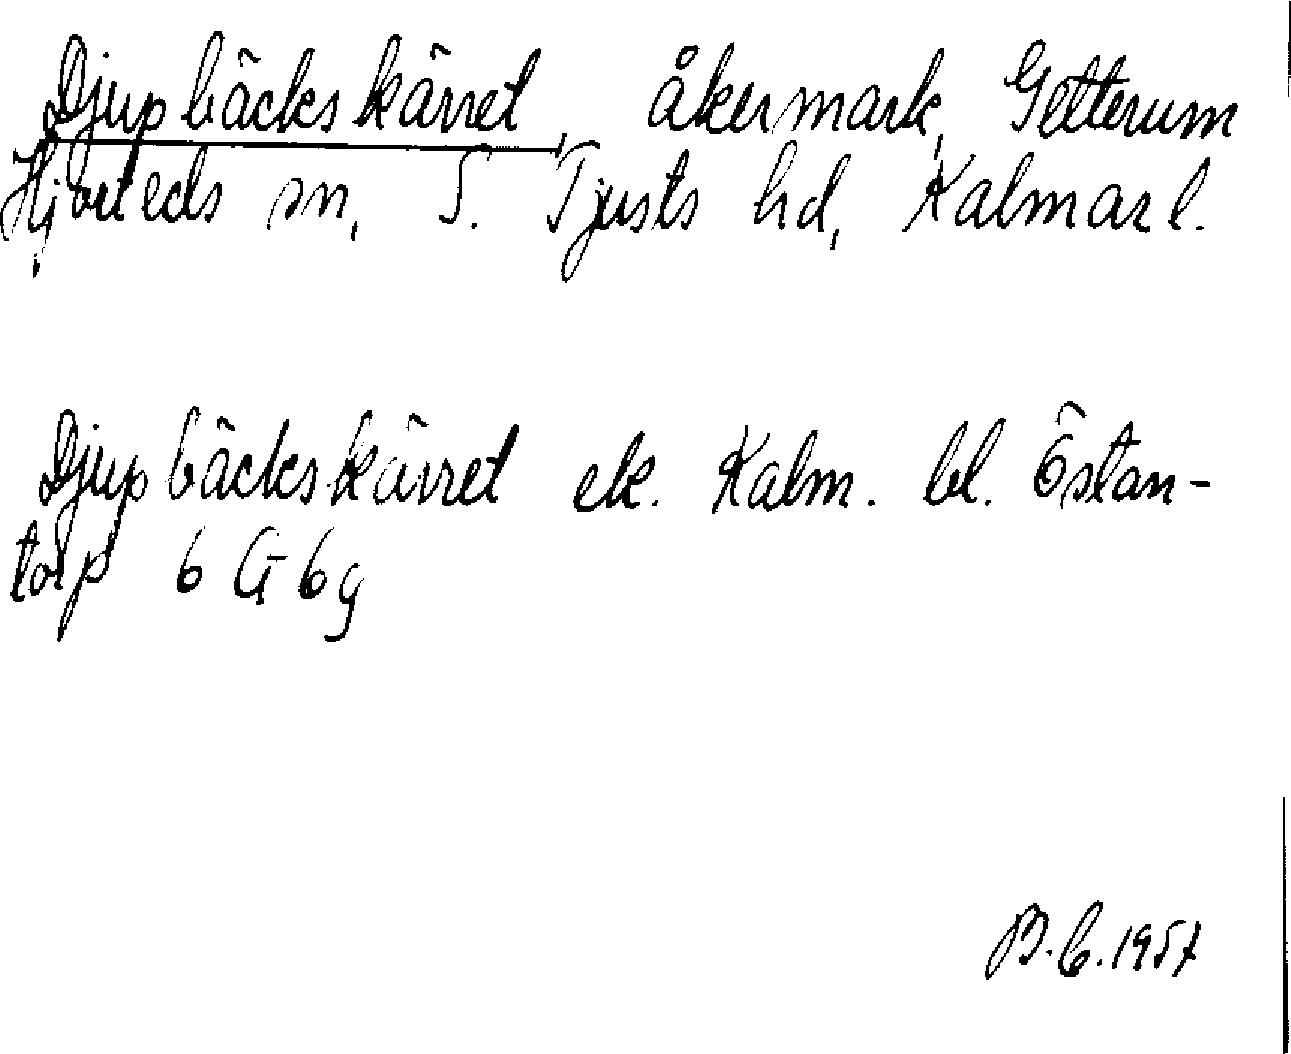 Djupbäckskärret åkermark, Getterum
Hjorteds sn, S. Tjusts hd, Kalmar l.
Djupbäckskärret ek. Kalm. bl. Östan-
torp 6 G 6g
B.C. 1957